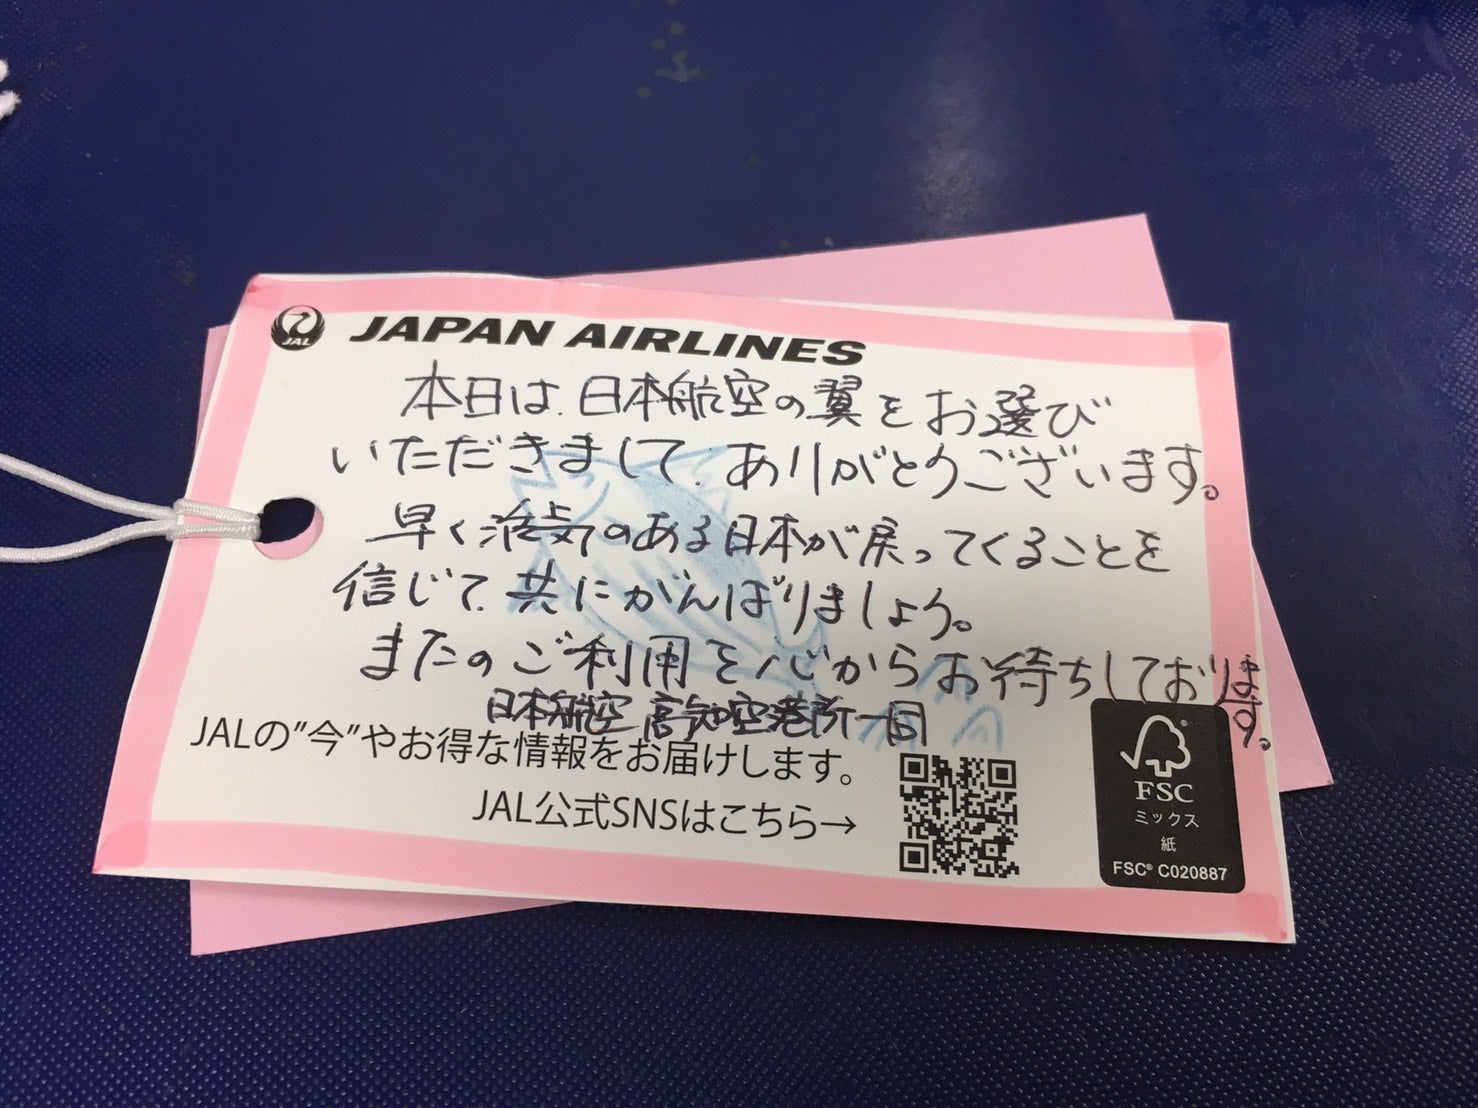 JAL JAPAN AIRLINES
本日は、日本航空の翼をお選び
いただきまして、ありがとうございます。
早く活気のある日本が戻ってくることを
信じて、共にがんばりましょう。
またのご利用を心からお待ちしております。
日本航空 高知空港所一同
JALの"今"やお得な情報をお届けします。
JAL公式SNSはこちら→
FSC®
ミックス
紙
FSC® C020887